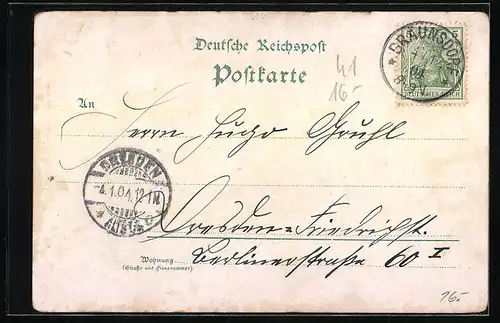 Deutsche Reichspost
Postkarte
5
BRÄUNSDORF
DEUTSCHES REICH
41
16.-
An
Herrn Hugo Gruhl
DRESDEN
4.1.04.12-1N
ALTST.
Dresden=Friedrichst.
Berlinerstraße 60 I
Wohnung
(Straße und Hausnummer)
16.-